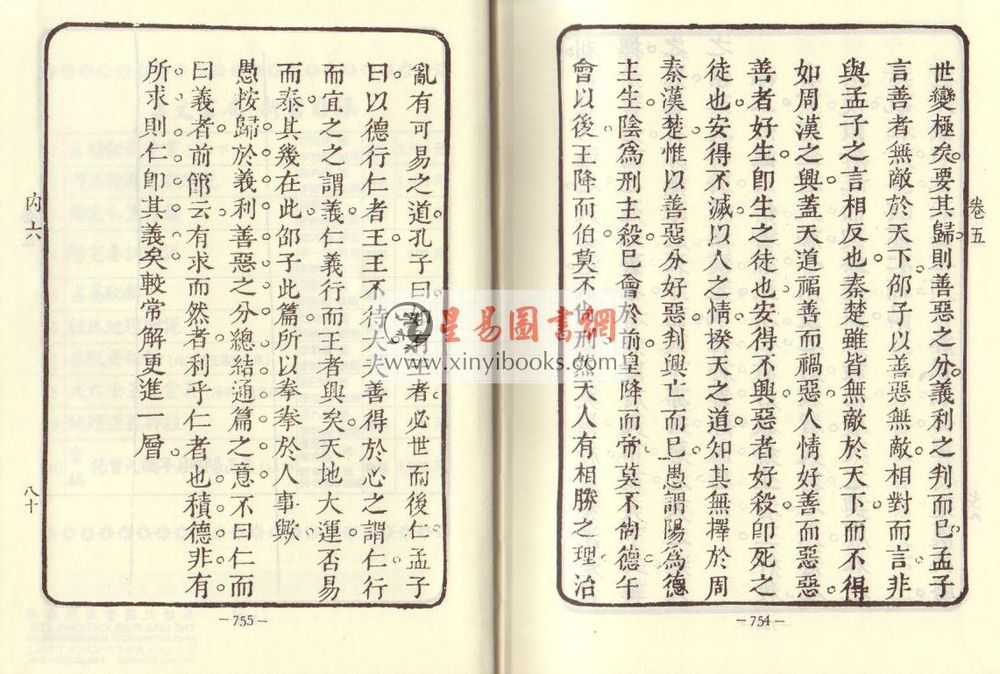 卷五
世變極矣。要其歸。則善惡之分。義利之判而已。孟子
言善者無敵於天下。邵子以善惡無敵。相對而言。非
與孟子之言相反也。秦楚雖皆無敵於天下。而不得
如周漢之興。蓋天道福善而禍惡。人情好善而惡惡。
善者好生。卽生之徒也。安得不興。惡者好殺。卽死之
徒也。安得不滅。以人之情。揆天之道。知其無擇於周
秦漢楚。惟以善惡分好惡。判興亡而已。愚謂陽爲德
主生。陰爲刑主殺。巳會於前。皇降而帝。莫不尙德。午
會以後。王降而伯。莫不尙刑。然天人有相勝之理。治
—754—
亂有可易之道。孔子曰
者必世而後仁。孟子
曰。以德行仁者王。王不待大。夫善得於心之謂仁。行
而宜之之謂義。仁義行而王者興矣。天地大運。否易
而泰。其幾在此。邵子此篇。所以拳拳於人事歟。
愚按歸於義利善惡之分。總結通篇之意。不曰仁而
曰義者。前節云。有求而然者利乎仁者也。積德非有
所求。則仁卽其義矣。較常解更進一層。
內六
八十
—755—
星易圖書網
www.xinyibooks.com